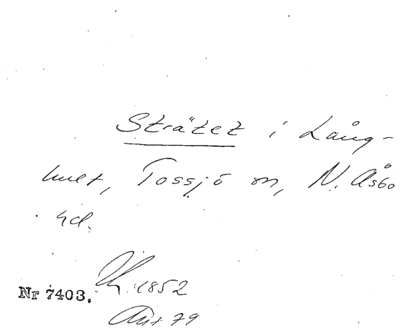 Strätet i Lång-
hult, Tossjö sn, N. Åsbo
hd.
Nr 7403. 1852
79